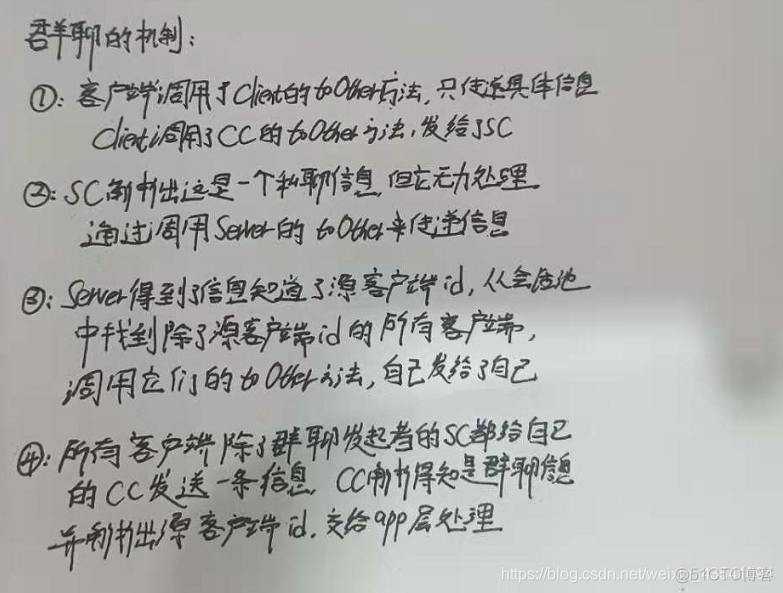 群聊的机制:
①: 客户端调用了Client的toOther方法,只传递具体信息
Client调用了CC的toOther方法,发给了SC
②: SC解析出这是一个私聊信息,但它无力处理
通过调用Server的toOther来传递信息
③: Server得到了信息知道了源客户端id,从会话池
中找到除了源客户端id的所有客户端,
调用它们的toOther方法,自己发给了自己
④: 所有客户端除了群聊发起者的SC都给自己
的CC发送一条信息,CC解析得知是群聊信息
并解析出源客户端id,交给app层处理
https://blog.csdn.net/weixin_ @51CTO博客